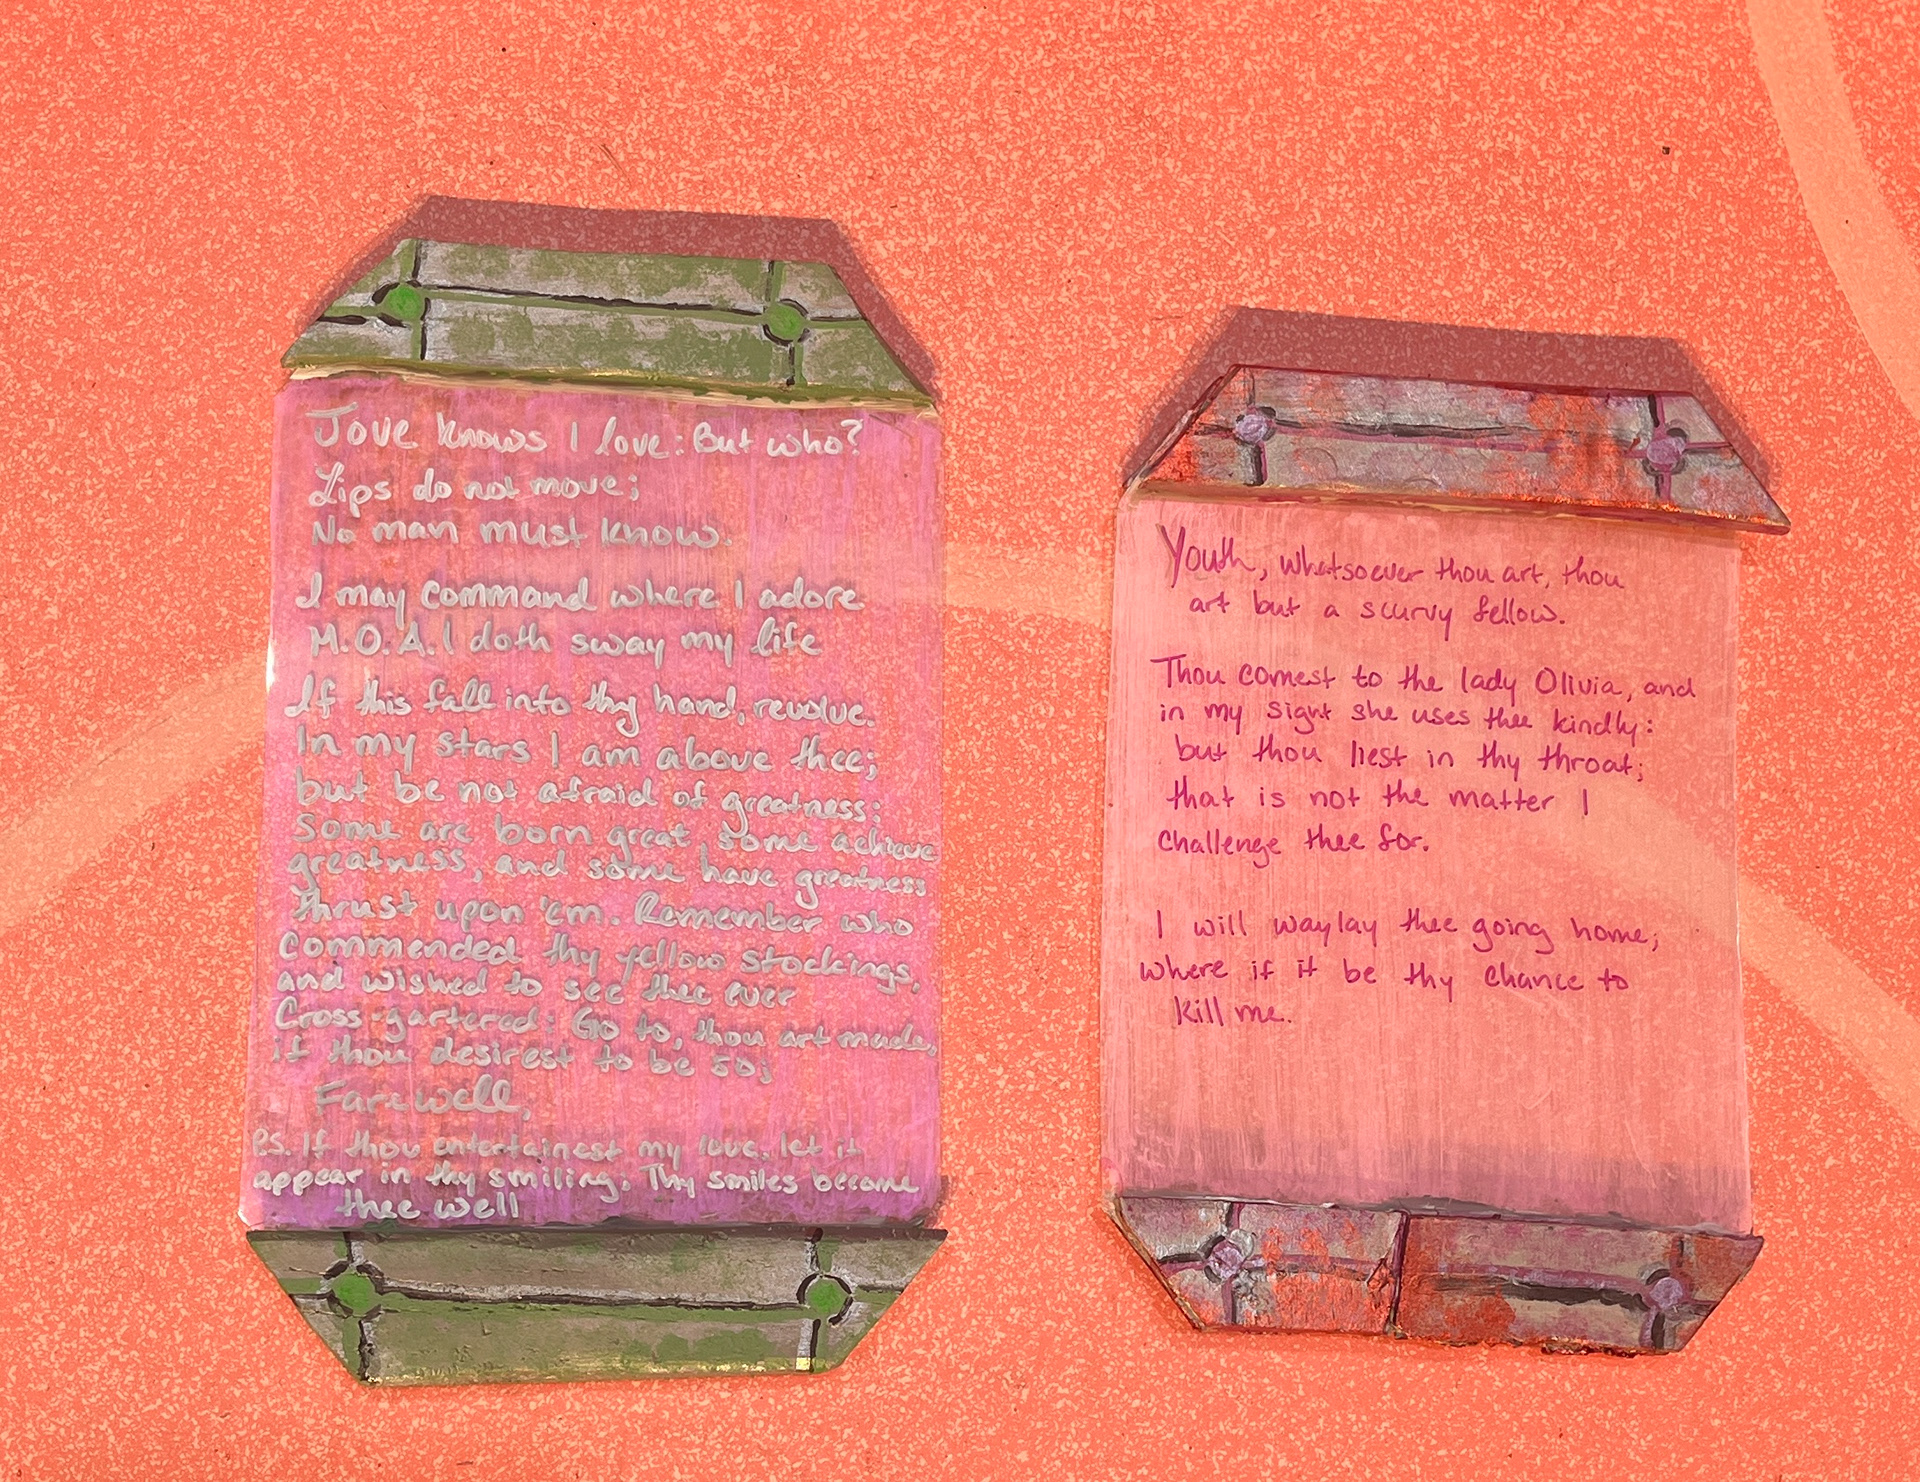 Jove knows I love: But who?
Lips do not move;
No man must know.
I may command where I adore
M.O.A.I doth sway my life
If this fall into thy hand, revolve.
In my stars I am above thee;
but be not afraid of greatness:
Some are born great some achieve
greatness, and some have greatness
thrust upon 'em. Remember who
commended thy yellow stockings,
and wished to see thee ever
Cross-gartered: Go to, thou art made,
if thou desirest to be so;
Farewell,
P.S. If thou entertainest my love, let it
appear in thy smiling. Thy smiles become
thee well
Youth, whatsoever thou art, thou
art but a scurvy fellow.
Thou comest to the lady Olivia, and
in my sight she uses thee kindly:
but thou liest in thy throat;
that is not the matter I
challenge thee for.
I will waylay thee going home;
where if it be thy chance to
kill me.